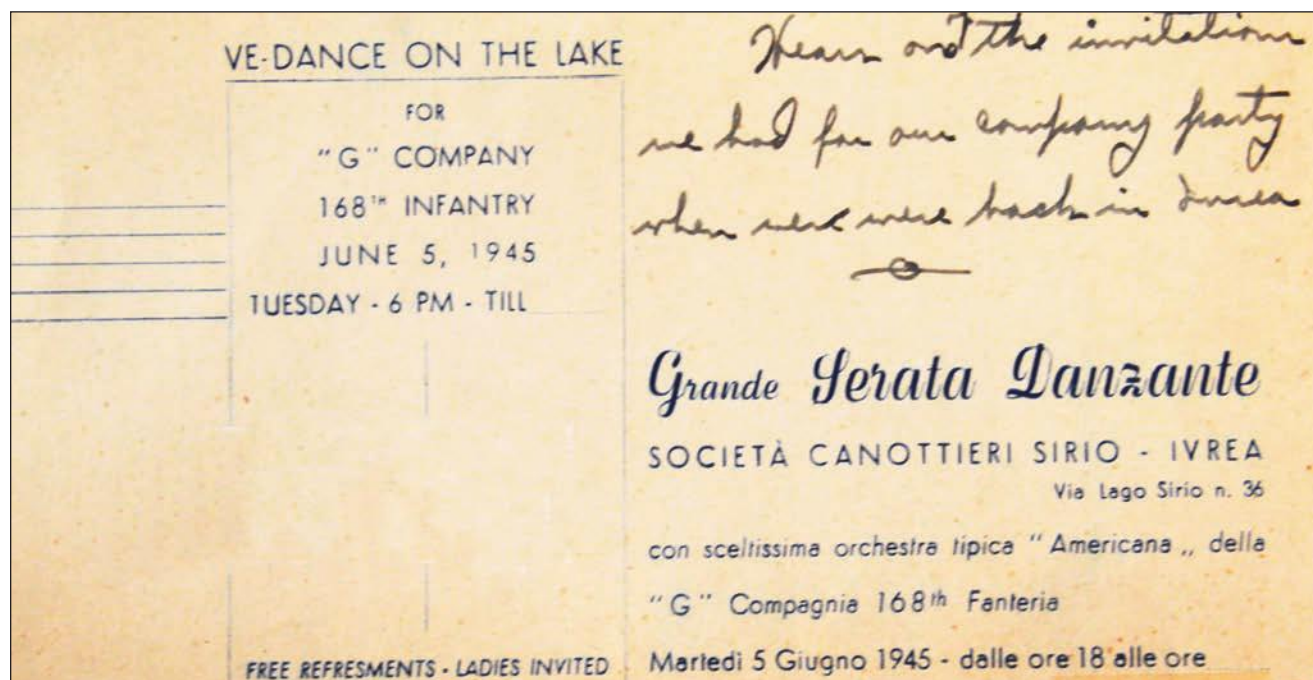 VE-DANCE ON THE LAKE
FOR
"G" COMPANY
168TH INFANTRY
JUNE 5, 1945
TUESDAY - 6 PM - TILL
FREE REFRESMENTS - LADIES INVITED
Hears the invitations
we had for our company party
when were back in Ivrea
Grande Serata Danzante
SOCIETÀ CANOTTIERI SIRIO - IVREA
Via Lago Sirio n. 36
con sceltissima orchestra tipica "Americana„ della
"G" Compagnia 168th Fanteria
Martedì 5 Giugno 1945 - dalle ore 18 alle ore